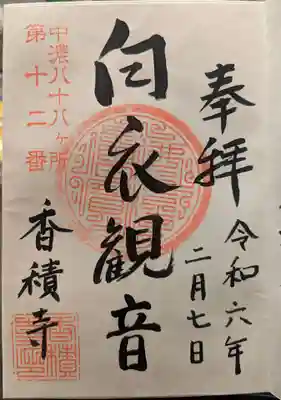 奉拝
令和六年
二月七日
白衣観音
中濃八十八ヶ所
第十二番
香積寺